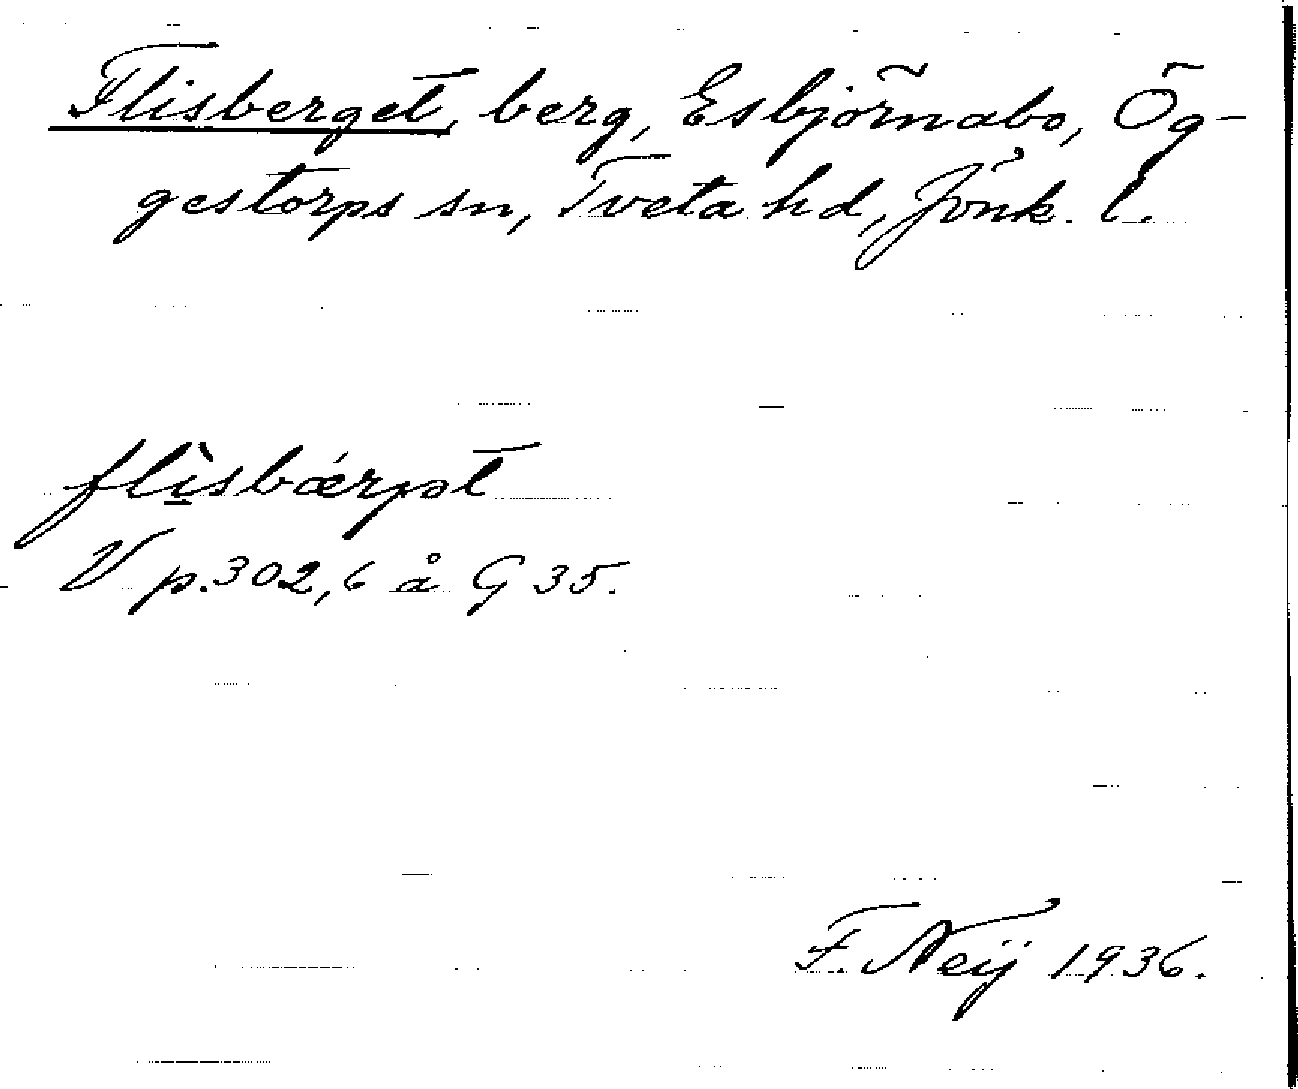 Flisberget, berg, Esbjörnabo, Ög-
gestorps sn, Tveta hd, Jönk. l.
flìsbærjət
V p. 302,6 å G 35.
F. Neij 1936.